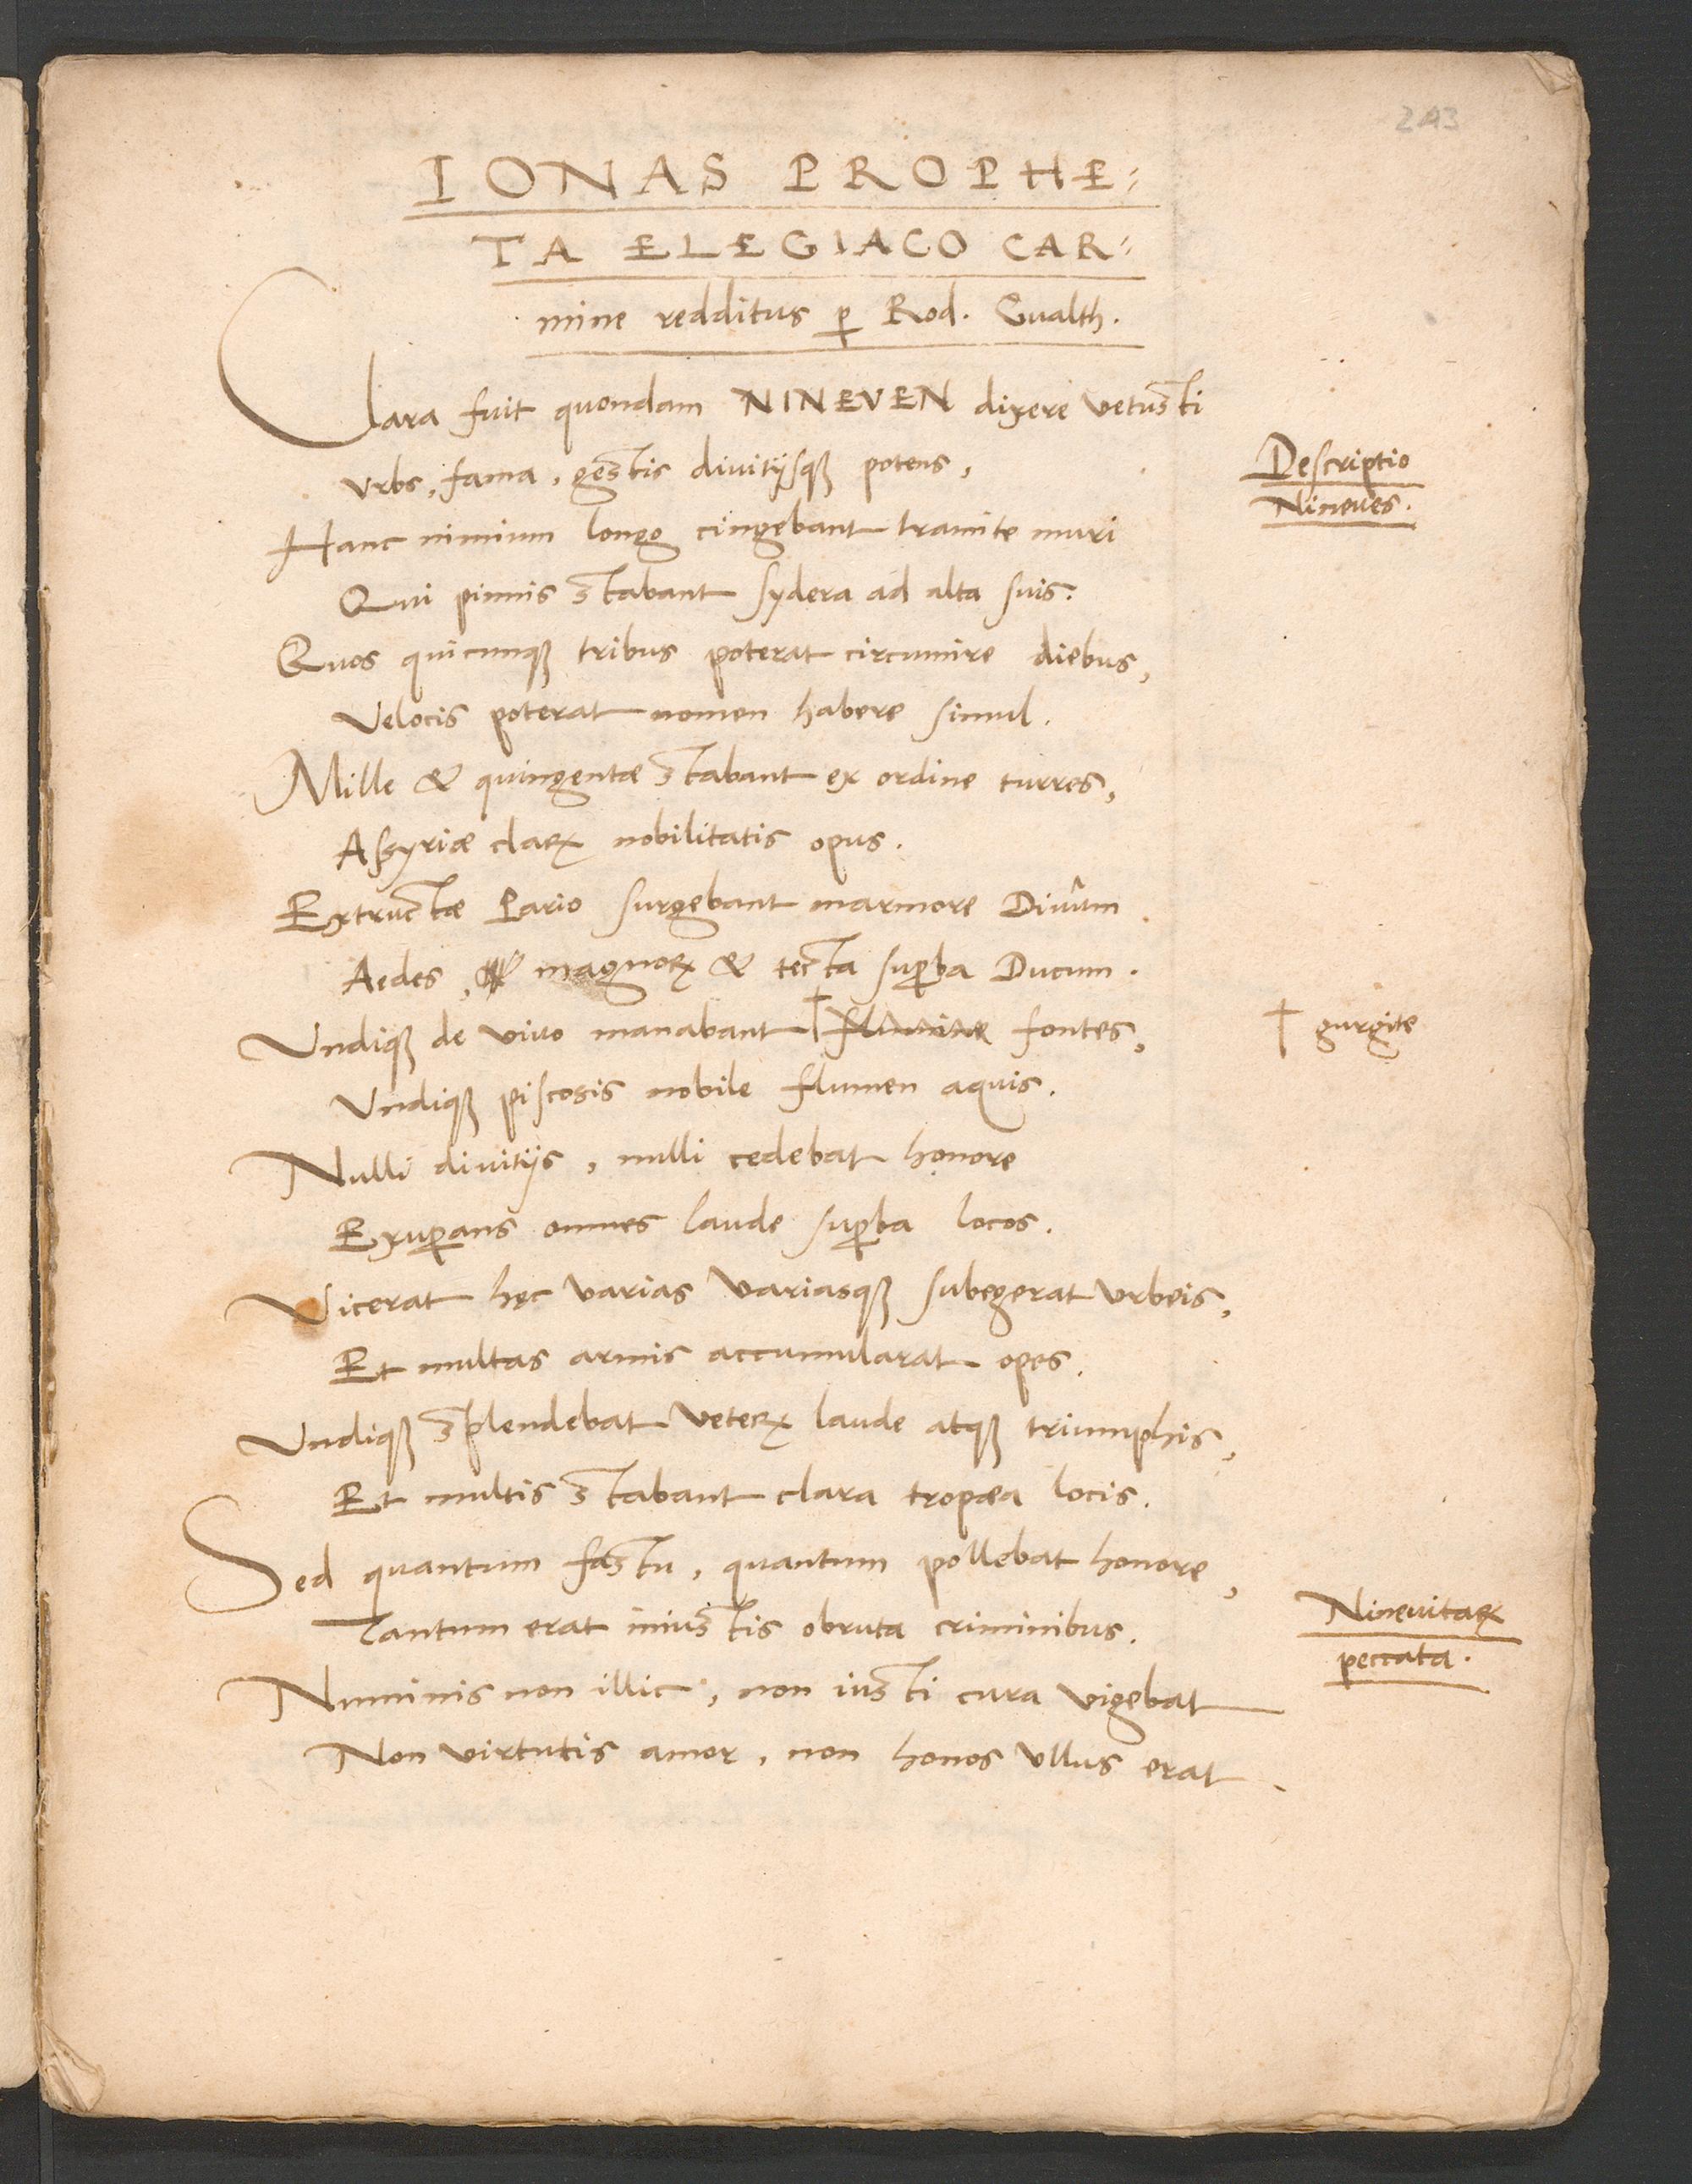 293
IONAS PROPHE-
TA ELEGIACO CAR-
mine redditus ꝑ Rod. Gualth.
Clara fuit quondam NINEVEN dixere vetusti
Vrbs, fama, gestis divitijsqꝫ potens,
Descriptio
Nineves.
Hanc nimium longo cingebant tramite muri
Qui pinnis stabant sydera ad alta suis.
Quos quicunqꝫ tribus poterat circumire diebus,
Velocis poterat nomen habere simul.
Mille & quingentæ stabant ex ordine turres,
Assyriæ claræ nobilitatis opus.
Extructæ Pario surgebant marmore Divûm
Aedes, magnoꝝ & tecta suꝑba Ducum.
Undiqꝫ de vivo manabant † flumine fontes,
† gurgite
Undiqꝫ piscosis nobile flumen aquis.
Nulli divitijs, nulli cedebat honore
Exuꝑans omnes laude suꝑba locos.
Vicerat hęc varias variasqꝫ subegerat urbeis,
Et multas armis accumularat opes.
Undiqꝫ splendebat veteꝝ laude atqꝫ triumphis,
Et multis stabant clara tropæa locis.
Sed quantum fastu, quantum pollebat honore,
Tantum erat iniustis obruta criminibus.
Ninevitaꝝ
peccata.
Numinis non illic, non iusti cura vigebat
Non virtutis amor, non honos ullus erat.